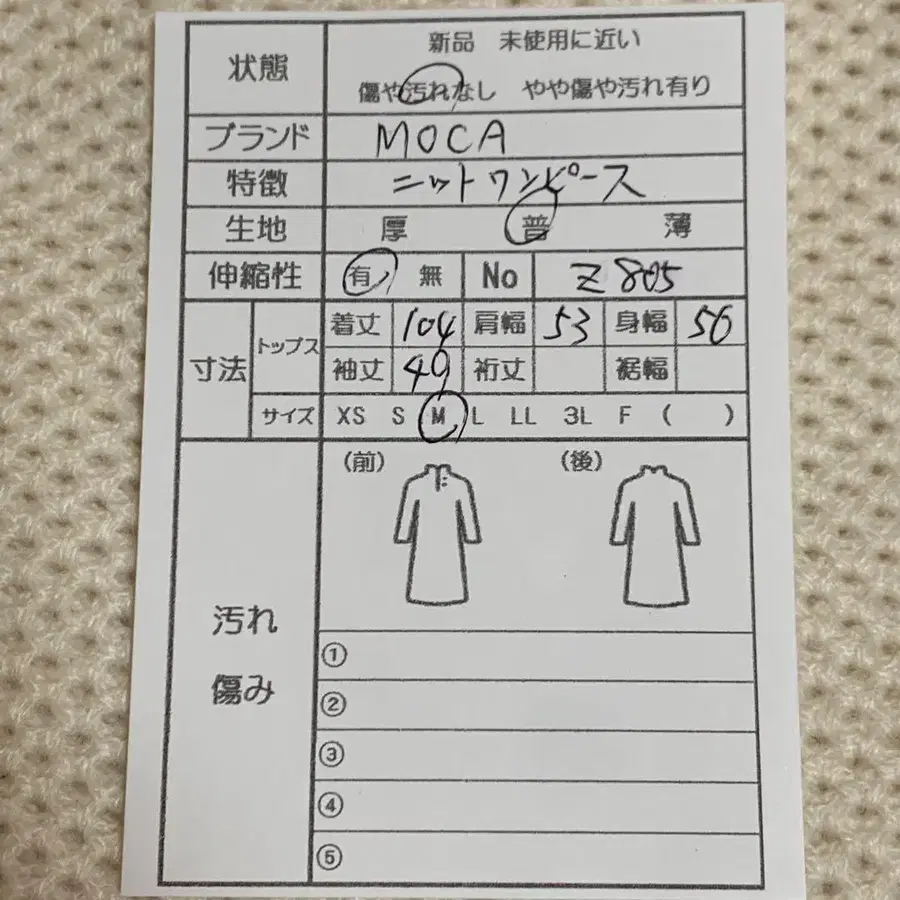 状態 新品 未使用に近い
傷や汚れなし やや傷や汚れ有り
ブランド MOCA
特徴 ニットワンピース
生地 厚 普 薄
伸縮性 有 無 No Z805
寸法 トップス 着丈 104 肩幅 53 身幅 56
袖丈 49 裄丈 裾幅
サイズ XS S M L LL 3L F ( )
(前) (後)
汚れ
傷み
①
②
③
④
⑤